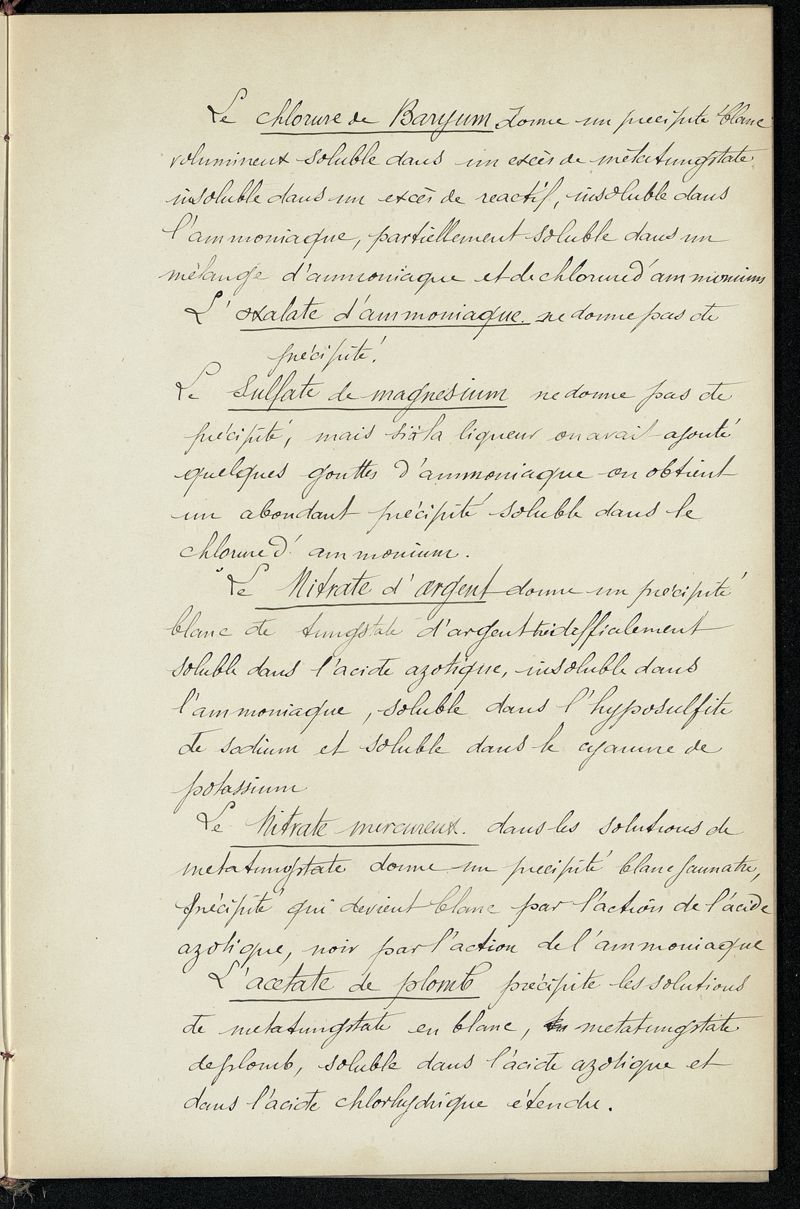 Le chlorure de Baryum donne un precipité blanc
volumineux soluble dans un excès de métatungstate
insoluble dans un excès de reactif, insoluble dans
l'ammoniaque, partiellement soluble dans un
mélange d'ammoniaque et de chlorure d'ammonium
L'oxalate d'ammoniaque. ne donne pas de
précipité.
Le Sulfate de magnesium ne donne pas de
précipité, mais si à la liqueur on avait ajouté
quelques gouttes d'ammoniaque on obtient
un abondant précipité soluble dans le
chlorure d'ammonium.
Le Nitrate d'argent donne un précipité
blanc de tungstate d'argent très difficilement
soluble dans l'acide azotique, insoluble dans
l'ammoniaque, soluble dans l'hyposulfite
de sodium et soluble dans le cyanure de
potassium
Le Nitrate mercureux. dans les solutions de
metatungstate donne un precipité blanc jaunatre,
précipité qui devient blanc par l'action de l'acide
azotique, noir par l'action de l'ammoniaque
L'acetate de plomb précipite les solutions
de metatungstate en blanc, metatungstate
de plomb, soluble dans l'acide azotique et
dans l'acide chlorhydrique étendu.